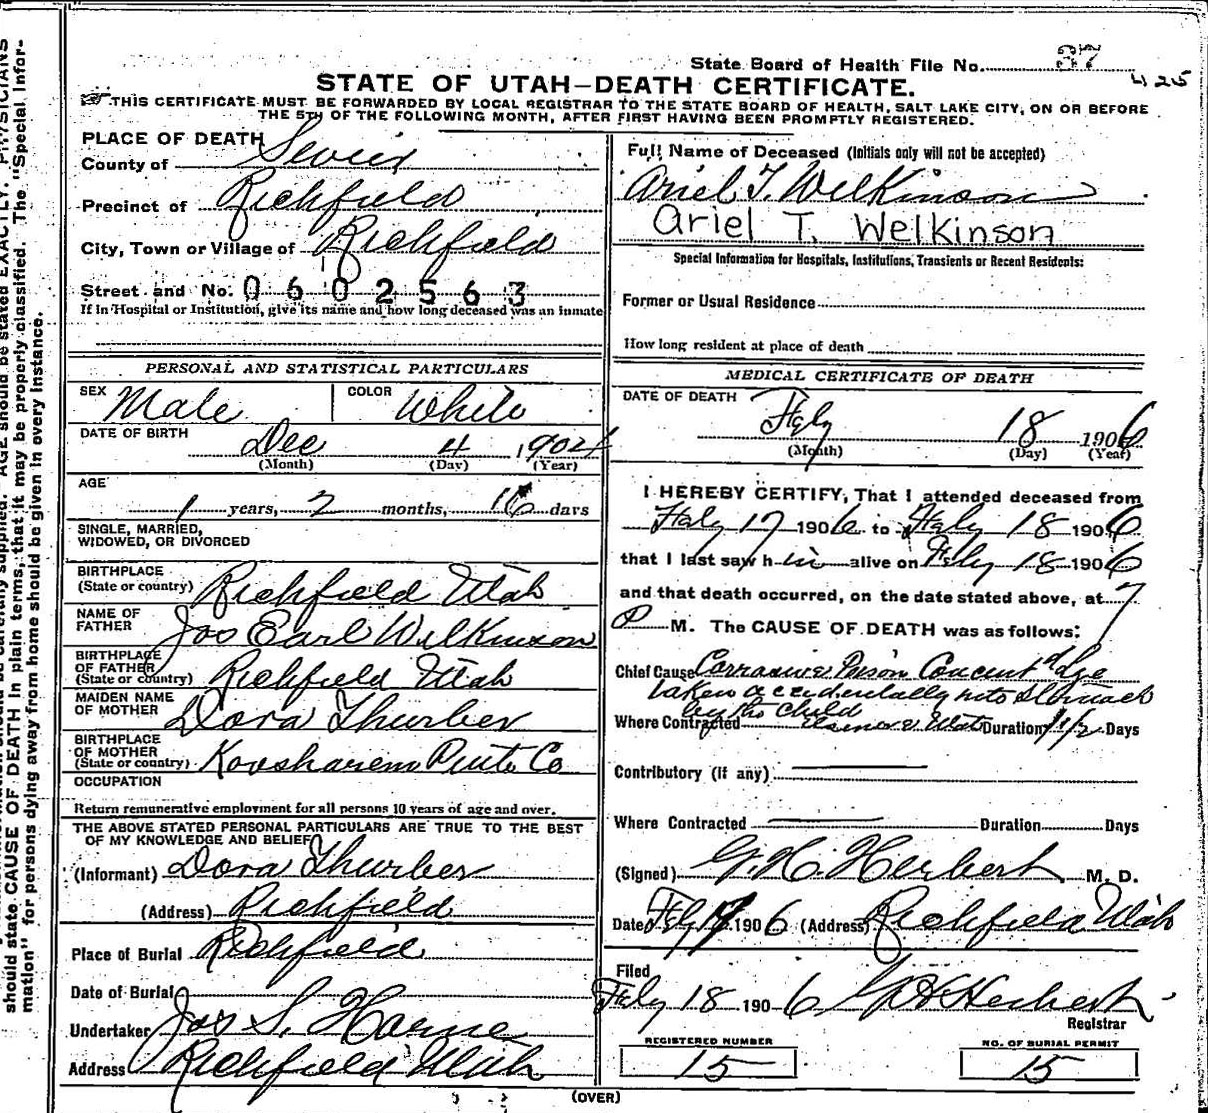 State Board of Health File No. 37
425
STATE OF UTAH—DEATH CERTIFICATE.
THIS CERTIFICATE MUST BE FORWARDED BY LOCAL REGISTRAR TO THE STATE BOARD OF HEALTH, SALT LAKE CITY, ON OR BEFORE
THE 5TH OF THE FOLLOWING MONTH, AFTER FIRST HAVING BEEN PROMPTLY REGISTERED.
PLACE OF DEATH
County of Sevier
Precinct of Richfield
City, Town or Village of Richfield
Street and No. 0602563
If in Hospital or Institution, give its name and how long deceased was an inmate
PERSONAL AND STATISTICAL PARTICULARS
SEX Male COLOR White
DATE OF BIRTH Dec 4 1904
(Month) (Day) (Year)
AGE
1 years, 2 months, 16 days
SINGLE, MARRIED,
WIDOWED, OR DIVORCED
BIRTHPLACE
(State or country) Richfield Utah
NAME OF
FATHER Jos Earl Wilkinson
BIRTHPLACE
OF FATHER
(State or country) Richfield Utah
MAIDEN NAME
OF MOTHER Dora Thurber
BIRTHPLACE
OF MOTHER
(State or country) Koosharem Piute Co
OCCUPATION
Return remunerative employment for all persons 10 years of age and over.
THE ABOVE STATED PERSONAL PARTICULARS ARE TRUE TO THE BEST
OF MY KNOWLEDGE AND BELIEF
(Informant) Dora Thurber
(Address) Richfield
Place of Burial Richfield
Date of Burial
Undertaker Jos S. Horne
Address Richfield Utah
Full Name of Deceased (Initials only will not be accepted)
Ariel T. Wilkinson
Ariel T. Welkinson
Special Information for Hospitals, Institutions, Transients or Recent Residents:
Former or Usual Residence
How long resident at place of death
MEDICAL CERTIFICATE OF DEATH
DATE OF DEATH
Feby 18 1906
(Month) (Day) (Year)
I HEREBY CERTIFY, That I attended deceased from
Feby 17 1906 to Feby 18 1906
that I last saw h im alive on Feby 18 1906
and that death occurred, on the date stated above, at 7
P M. The CAUSE OF DEATH was as follows:
Chief Cause Corrosive Poison Concentd Lye
taken accidentally into Stomach
by the child
Where Contracted Elsinore Utah Duration 1 1/2 Days
Contributory (if any)
Where Contracted Duration Days
(Signed) G. H. Herbert M. D.
Date Feby 1906 (Address) Richfield Utah
Filed
Feby 18 1906 Herbert
Registrar
REGISTERED NUMBER
15
NO. OF BURIAL PERMIT
15
(OVER)
should state CAUSE OF DEATH in plain terms, that it may be properly classified. The "Special Infor-
mation" for persons dying away from home should be given in every instance.